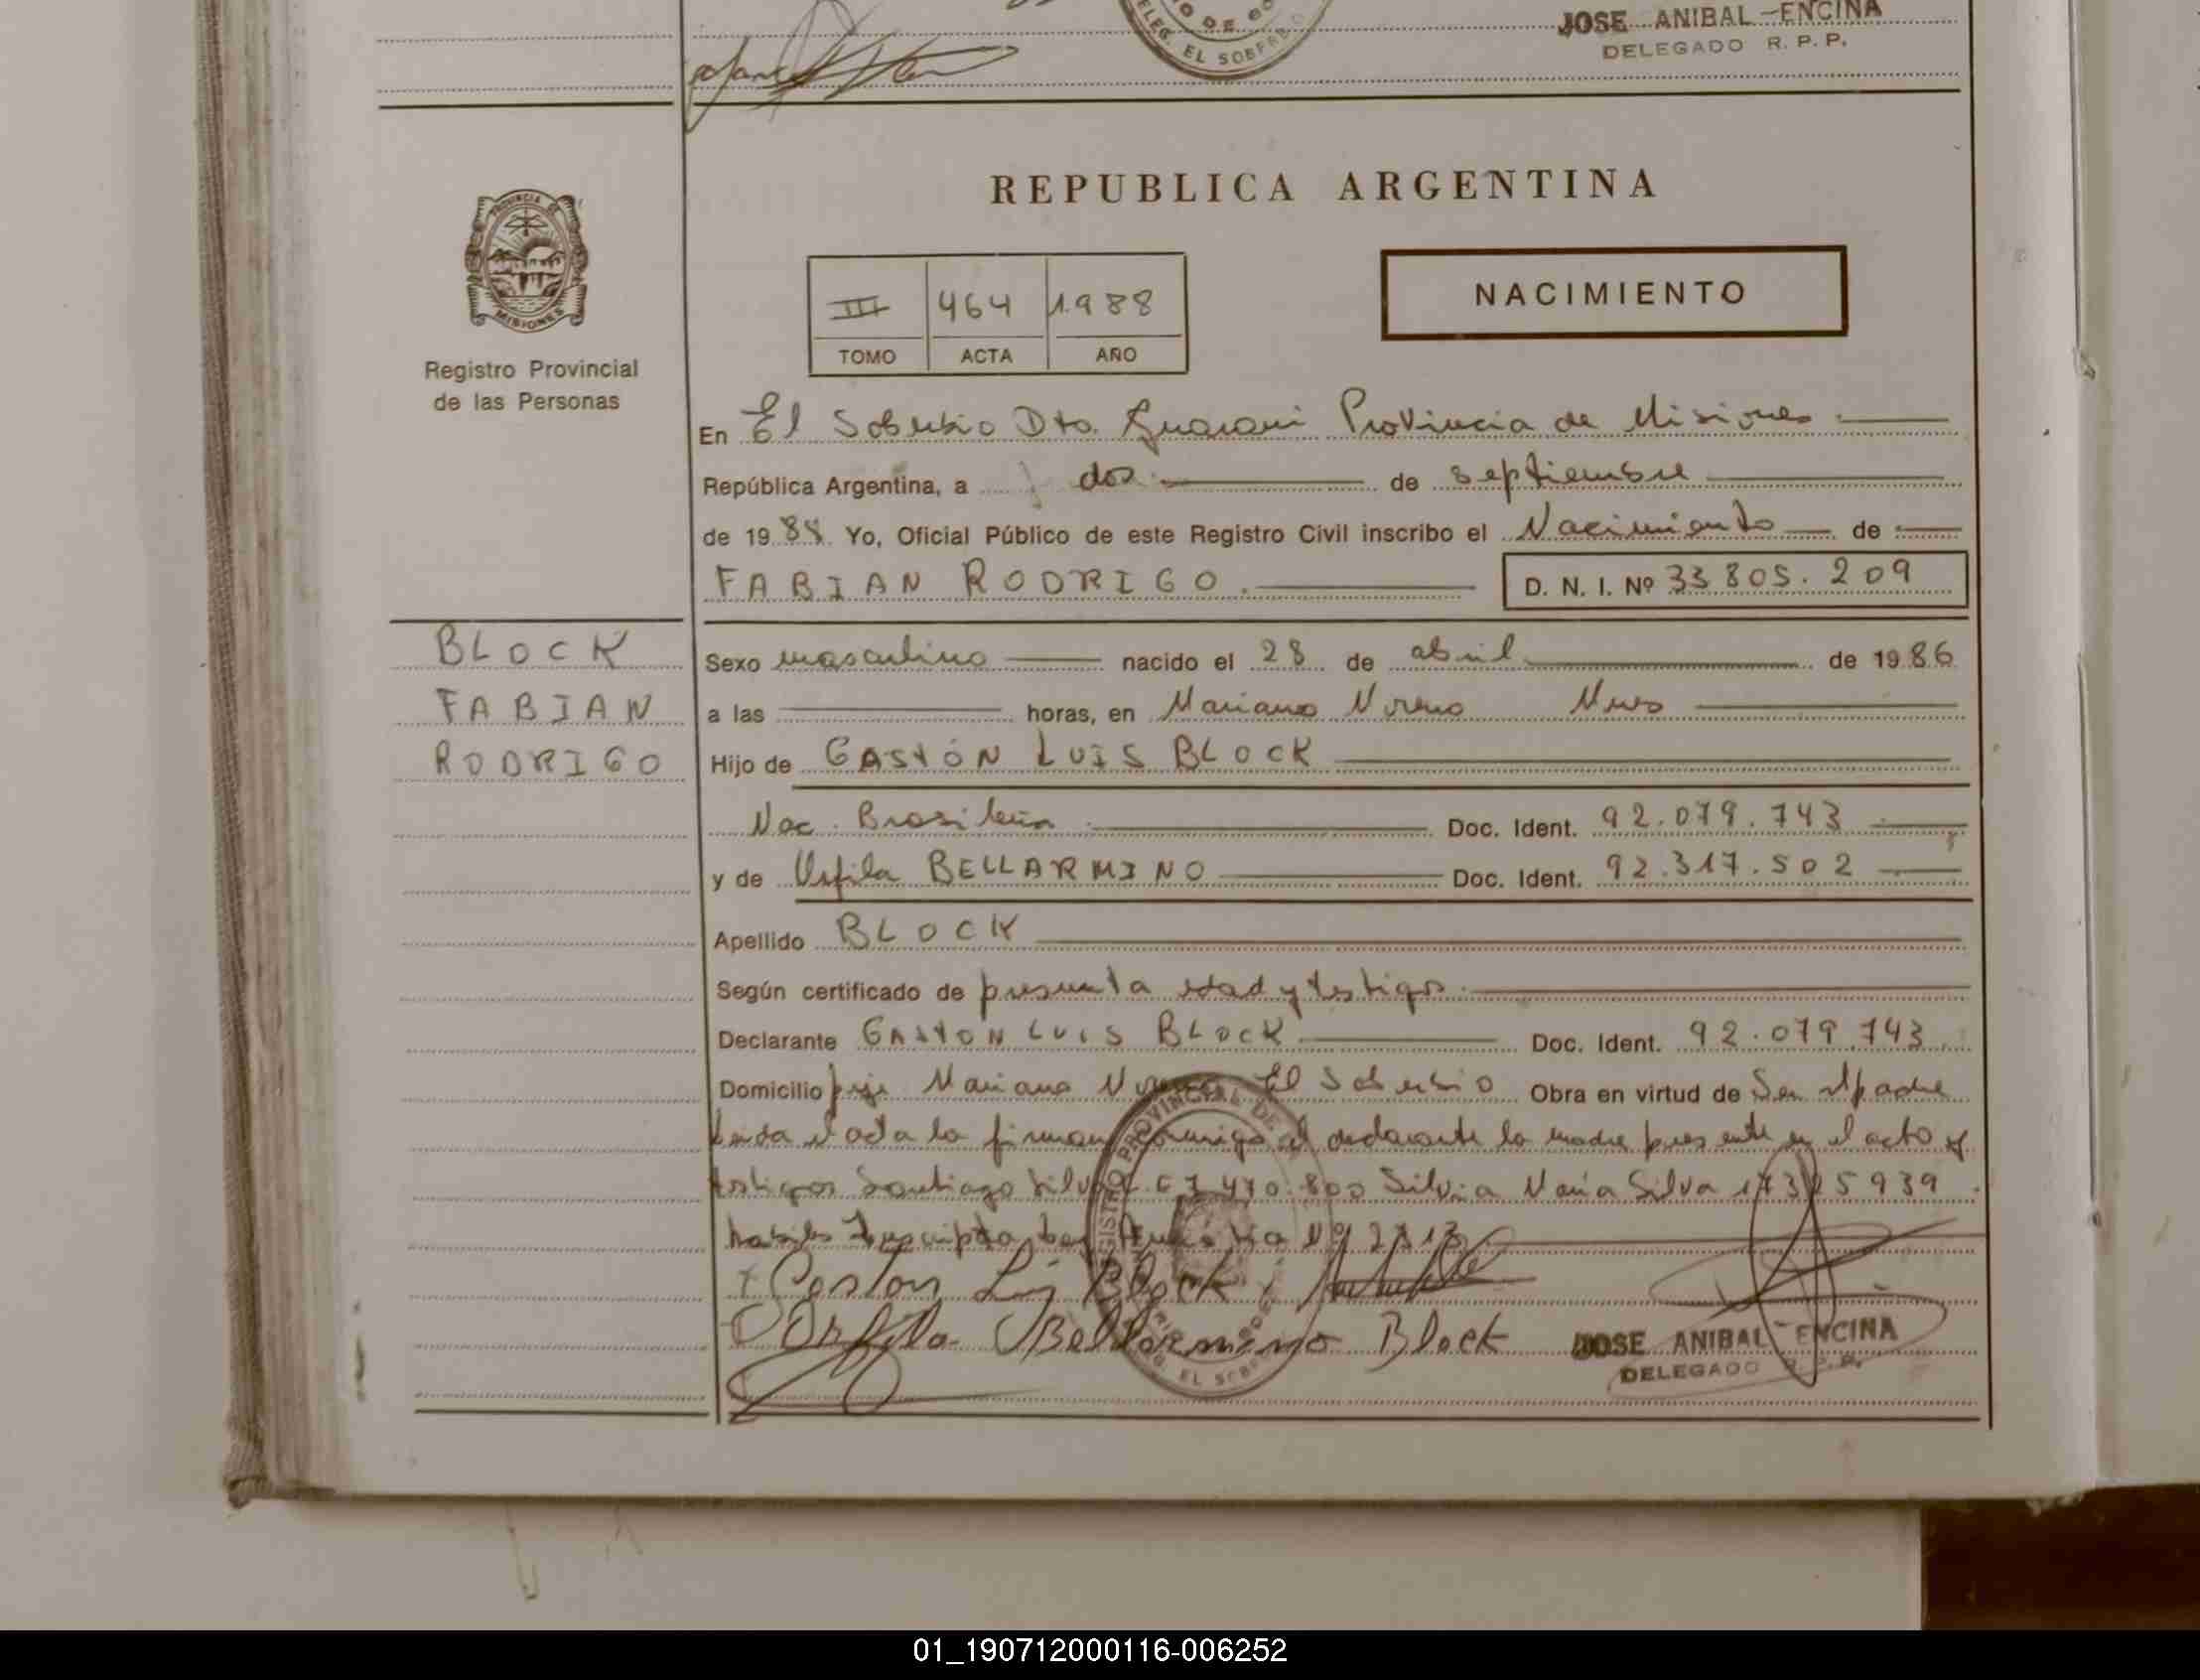 JOSE ANIBAL ENCINA
DELEGADO R. P. P.
EL SOBERBIO
REPUBLICA ARGENTINA
PROVINCIA DE
MISIONES
III 464 1988
TOMO ACTA AÑO
NACIMIENTO
Registro Provincial
de las Personas
En El Soberbio Dto. Guarani Provincia de Misiones
República Argentina, a dos de septiembre
de 1988 Yo, Oficial Público de este Registro Civil inscribo el Nacimiento de
FABIAN RODRIGO. D. N. I. Nº 33 805. 209
BLOCK
FABIAN
RODRIGO
Sexo masculino nacido el 28 de abril de 1986
a las horas, en Mariano Moreno Mnes
Hijo de GASTÓN LUIS BLOCK
Nac. Brasileña Doc. Ident. 92.079.743
y de Orfila BELLARMINO Doc. Ident. 92.317.502
Apellido BLOCK
Según certificado de presunta edad y testigos.
Declarante GASTON LUIS BLOCK Doc. Ident. 92.079.743
Domicilio pje Mariano Moreno El Soberbio Obra en virtud de Ser el padre
Leida el acta la firman conmigo el declarante la madre presente en el acto y
testigos Santiago Silva 470.800 Silvia Maria Silva 939
habiles Inscripta
Gaston Luis Block
Orfila Bellarmino Block
JOSE ANIBAL ENCINA
DELEGADO R. P. P.
01_190712000116-006252